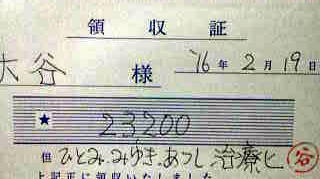 領収証
大谷 様 '76年2月19日
★ 23200
但 ひとみ.みゆき.あつし 治療ヒ 谷
上記正に領収いたしました